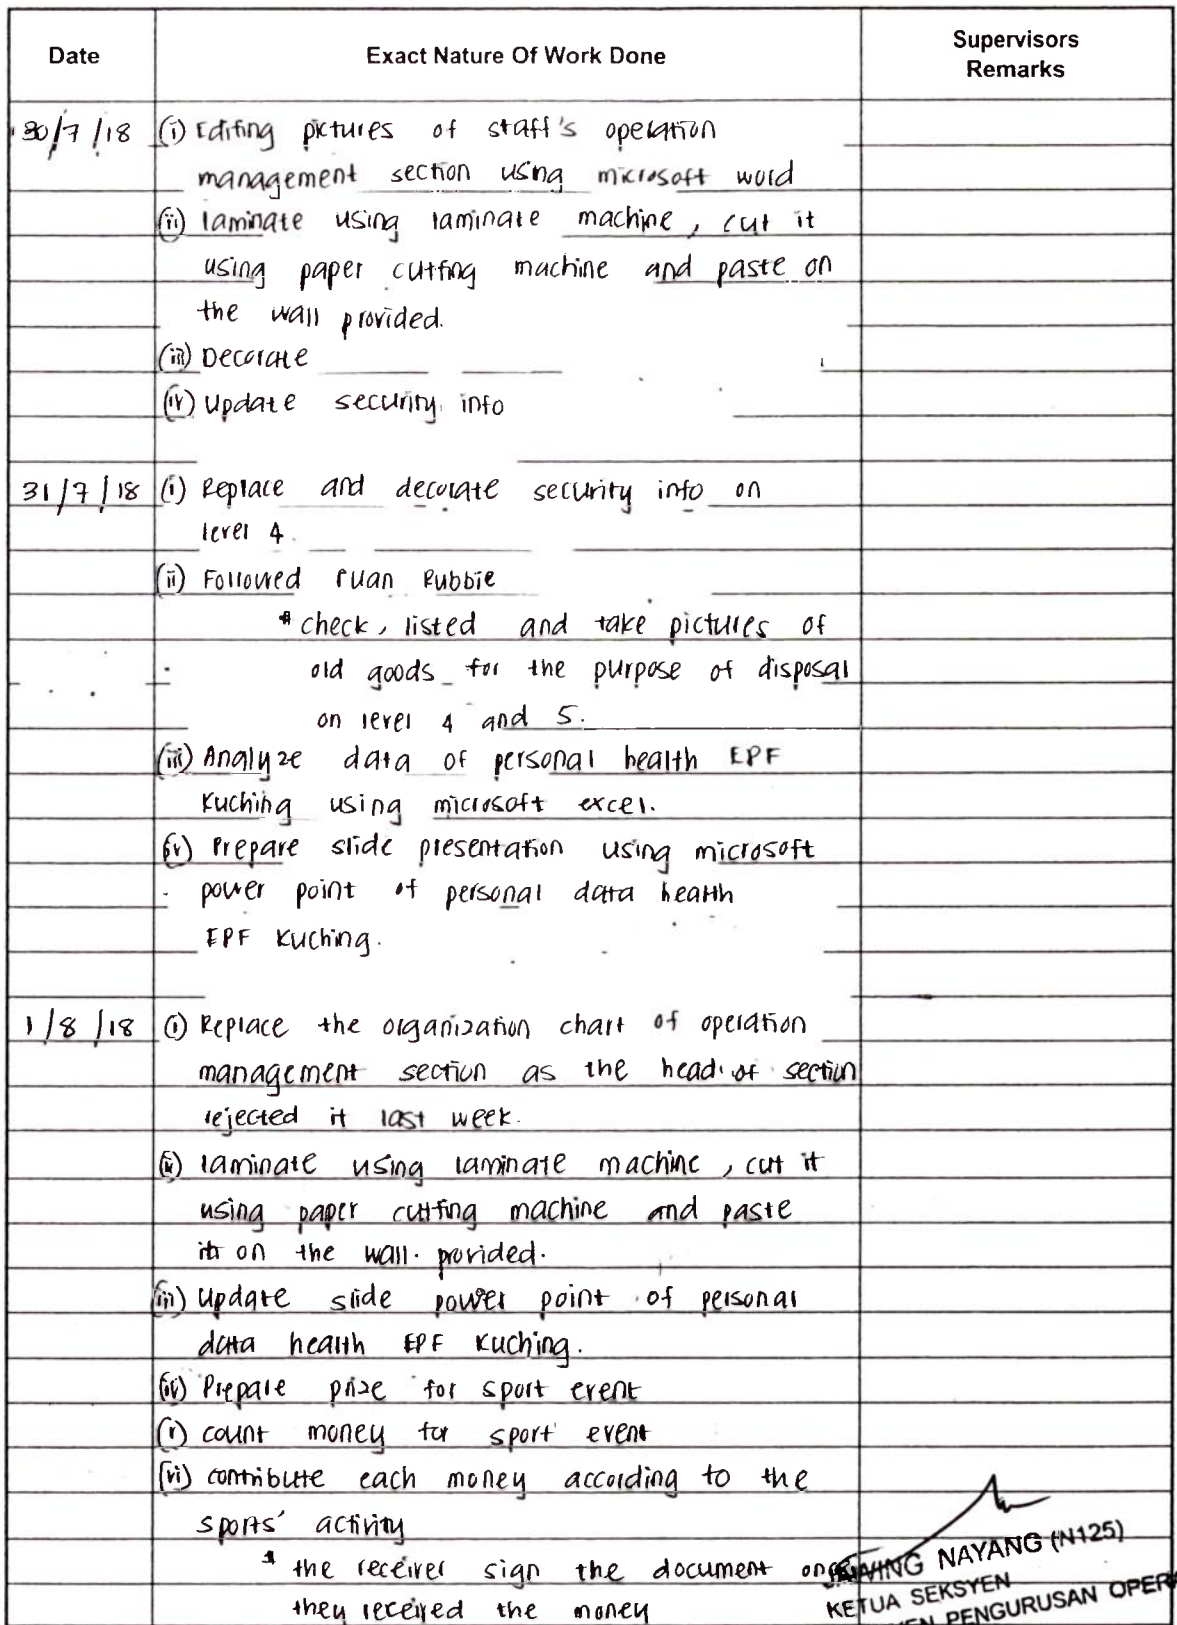 Date
Exact Nature Of Work Done
Supervisors
Remarks
30/7/18 (i) Editing pictures of staff's operation
management section using microsoft word
(ii) laminate using laminate machine, cut it
using paper cutting machine and paste on
the wall provided.
(iii) Decorate
(iv) update security info
31/7/18 (i) Replace and decorate security info on
level 4.
(ii) Followed Puan Rubbie
* check, listed and take pictures of
old goods for the purpose of disposal
on level 4 and 5.
(iii) Analyze data of personal health EPF
Kuching using microsoft excel.
(iv) Prepare slide presentation using microsoft
power point of personal data health
EPF Kuching.
1/8/18 (i) Replace the organization chart of operation
management section as the head of section
rejected it last week.
(ii) laminate using laminate machine, cut it
using paper cutting machine and paste
it on the wall provided.
(iii) update slide power point of personal
data health EPF Kuching.
(iv) Prepare prize for sport event
(v) count money for sport event
(vi) contribute each money according to the
sports' activity
* the receiver sign the document
they received the money
NAYANG (N125)
KETUA SEKSYEN
PENGURUSAN